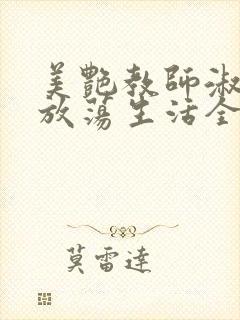 美艷教師淑
放蕩生活全
莫雷達